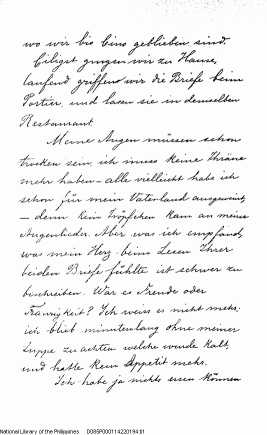 wo wir bis Eins geblieben sind.
Eiligst gingen wir zu Hause,
laufend griffen wir die Briefe beim
Portier, und lasen sie in demselben
Restaurant
Meine Augen müssen schon
trocken sein, ich muss keine Thräne
mehr haben - alle vielleicht habe ich
schon für mein Vaterland ausgeweint
- denn kein Tröpfchen kam an meine
Augenlieder. Aber was ich empfand,
was mein Herz beim Lesen Ihrer
beiden Briefe fühlte ist schwer zu
beschreiben. War es Freude oder
Traurigkeit? Ich weiss es nicht mehr;
ich blieb minutenlang ohne meiner
Suppe zu achten welche wurde kalt,
und hatte kein Appetit mehr.
Ich habe ja nichts essen können
National Library of the Philippines